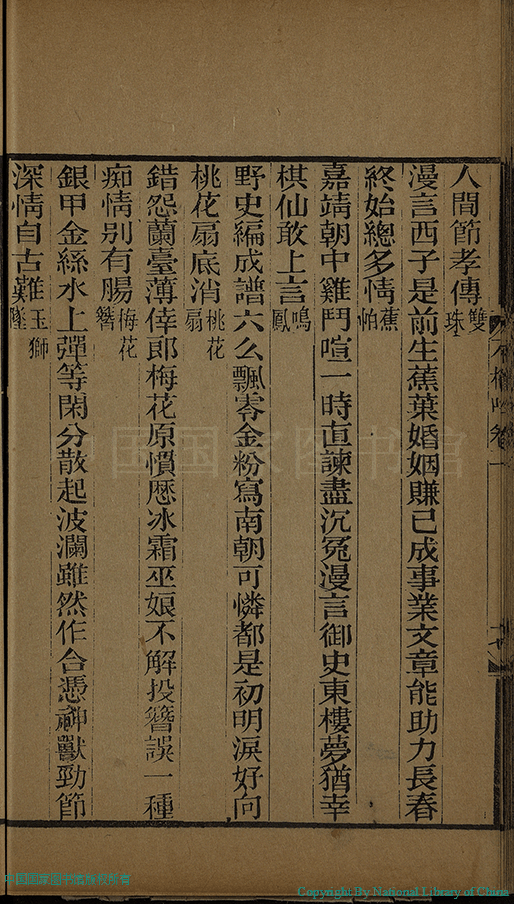 人間節孝傳雙珠
漫言西子是前生蕉葉婚姻賺已成事業文章能助力長春
終始總多情蕉帕
嘉靖朝中雞鬥喧一時直諫盡沉冤漫言御史東樓夢猶幸
棋仙敢上言鳴鳳
野史編成譜六么飄零金粉寫南朝可憐都是初明淚好向
桃花扇底消桃花扇
錯怨蘭臺薄倖郎梅花原慣歷冰霜巫娘不解投簪誤一種
痴情别有腸梅花簪
銀甲金絲水上彈等閑分散起波瀾雖然作合憑神獸勁節
深情自古難玉獅墜
中国国家图书馆
Copyright By National Library of China